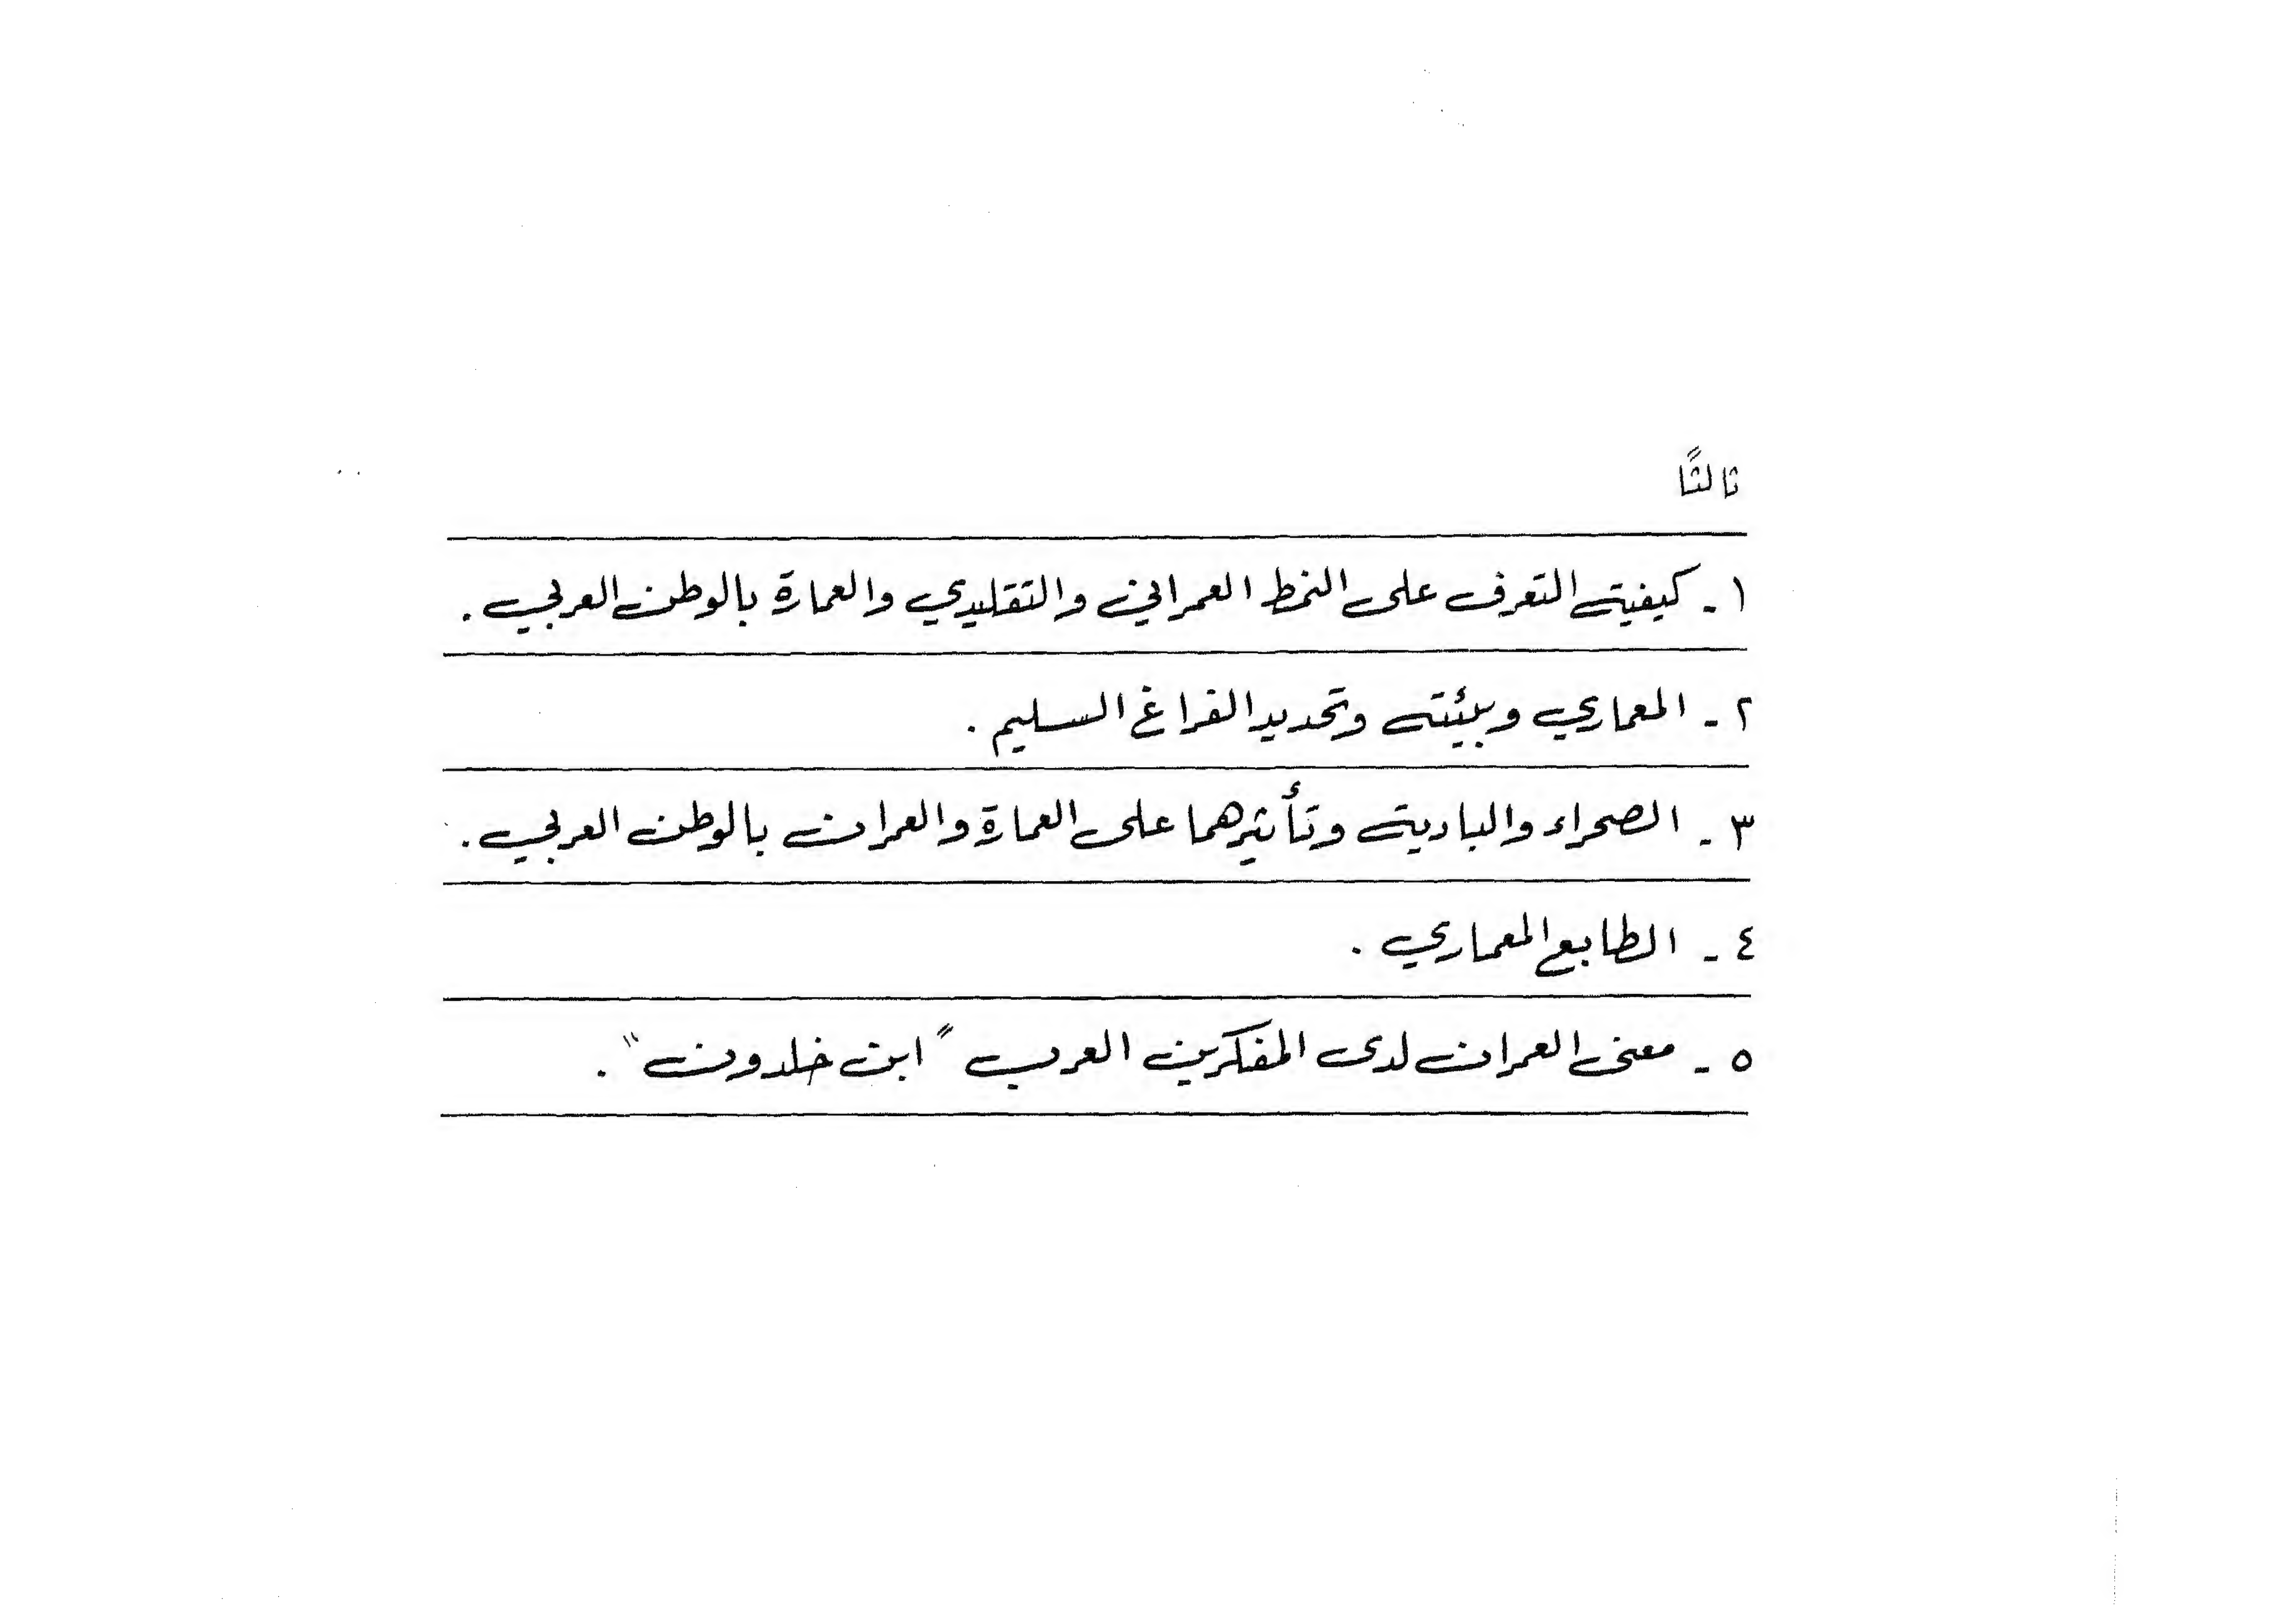 ثالثًا
١- كيفية التعرف على النمط العمراني والتقليدي والعمارة بالوطن العربي.
٢- المعماري وبيئته وتحديد الفراغ السليم.
٣- الصحراء والبادية وتأثيرهما على العمارة والعمران بالوطن العربي.
٤- الطابع المعماري.
٥- معنى العمران لدى المفكرين العرب "ابن خلدون".